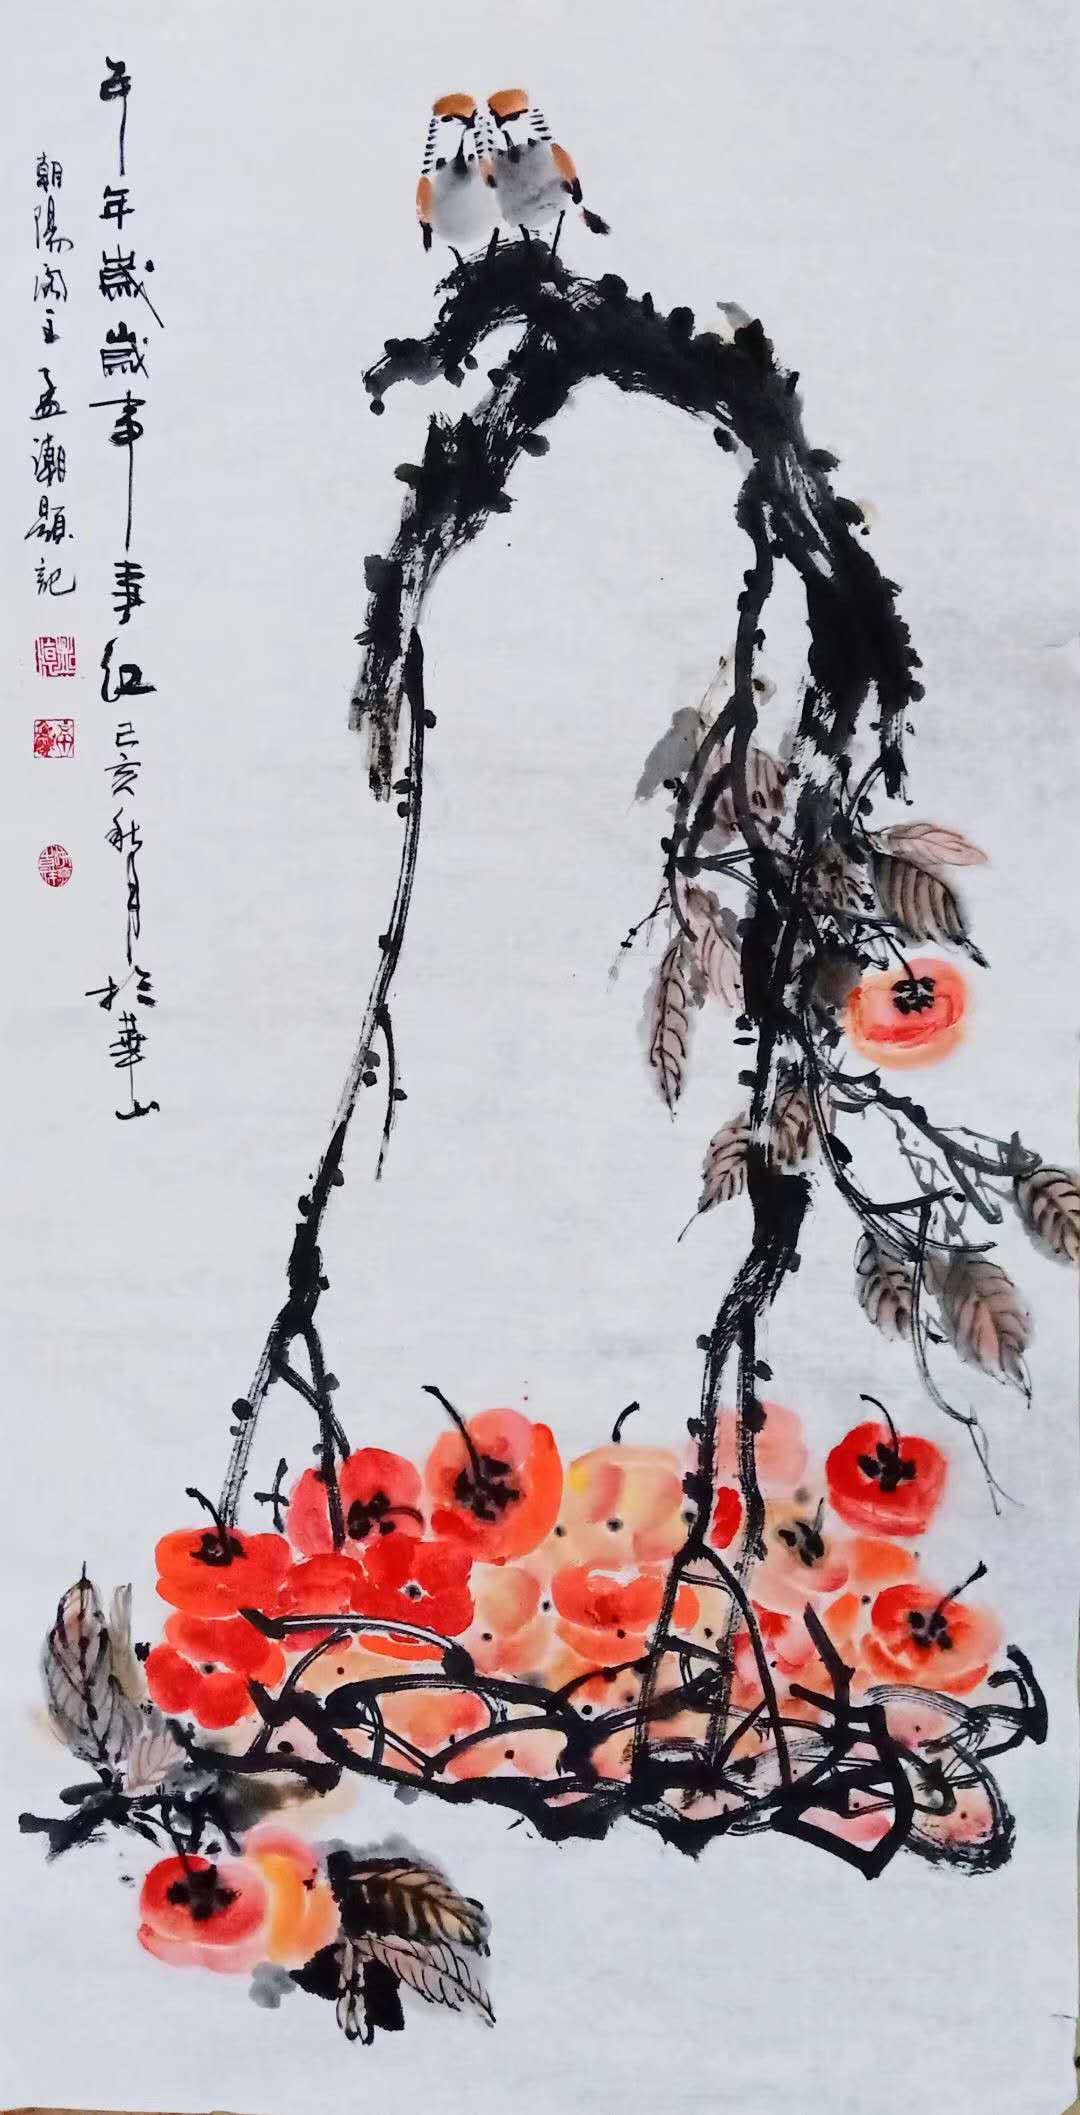 年年歲歲事事红己亥秋月於華山
朝陽阁主孟潮題記